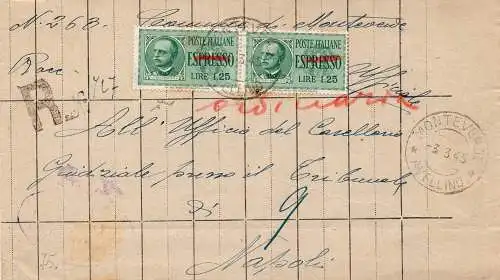 N. 268 Comune di Monteverde
POSTE ITALIANE POSTE ITALIANE
ESPRESSO ESPRESSO
LIRE 1.25 LIRE 1.25
Racc.
Ufficiale
R
ordinaria
All' Ufficio del Casellario
Giudiziale presso il Tribunale
di
9
Napoli
MONTEVERDE
3.3.45
AVELLINO
75.